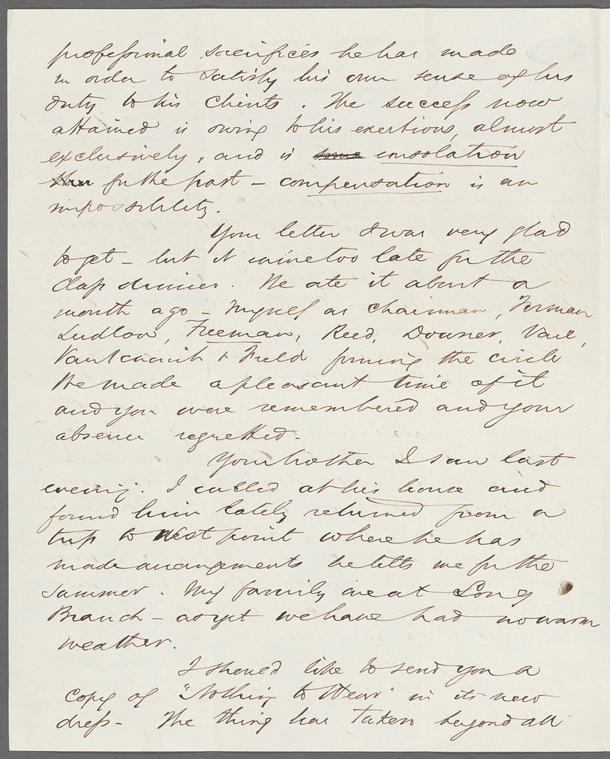 professional sacrifices he has made
in order to satisfy his own sense of his
duty to his clients. The success now
attained is owing to his exertions, almost
exclusively, and is some consolation
for the past – compensation is an
impossibility.
Your letter I was very glad
to get – but it came too late for the
Class dinner. We ate it about a
month ago – myself as chairman,
Ludlow, Freeman, Reed, Downer, Vail,
& Field forming the circle
We made a pleasant time of it
and you were remembered and your
absence regretted.
Your brother I saw last
evening. I called at his house and
found him lately returned from a
trip to West point where he has
made arrangements he tells me for the
summer. My family are at Long
Branch – as yet we have had no warm
weather.
I should like to send you a
copy of "Nothing to Wear" in its new
dress – The thing has taken beyond all